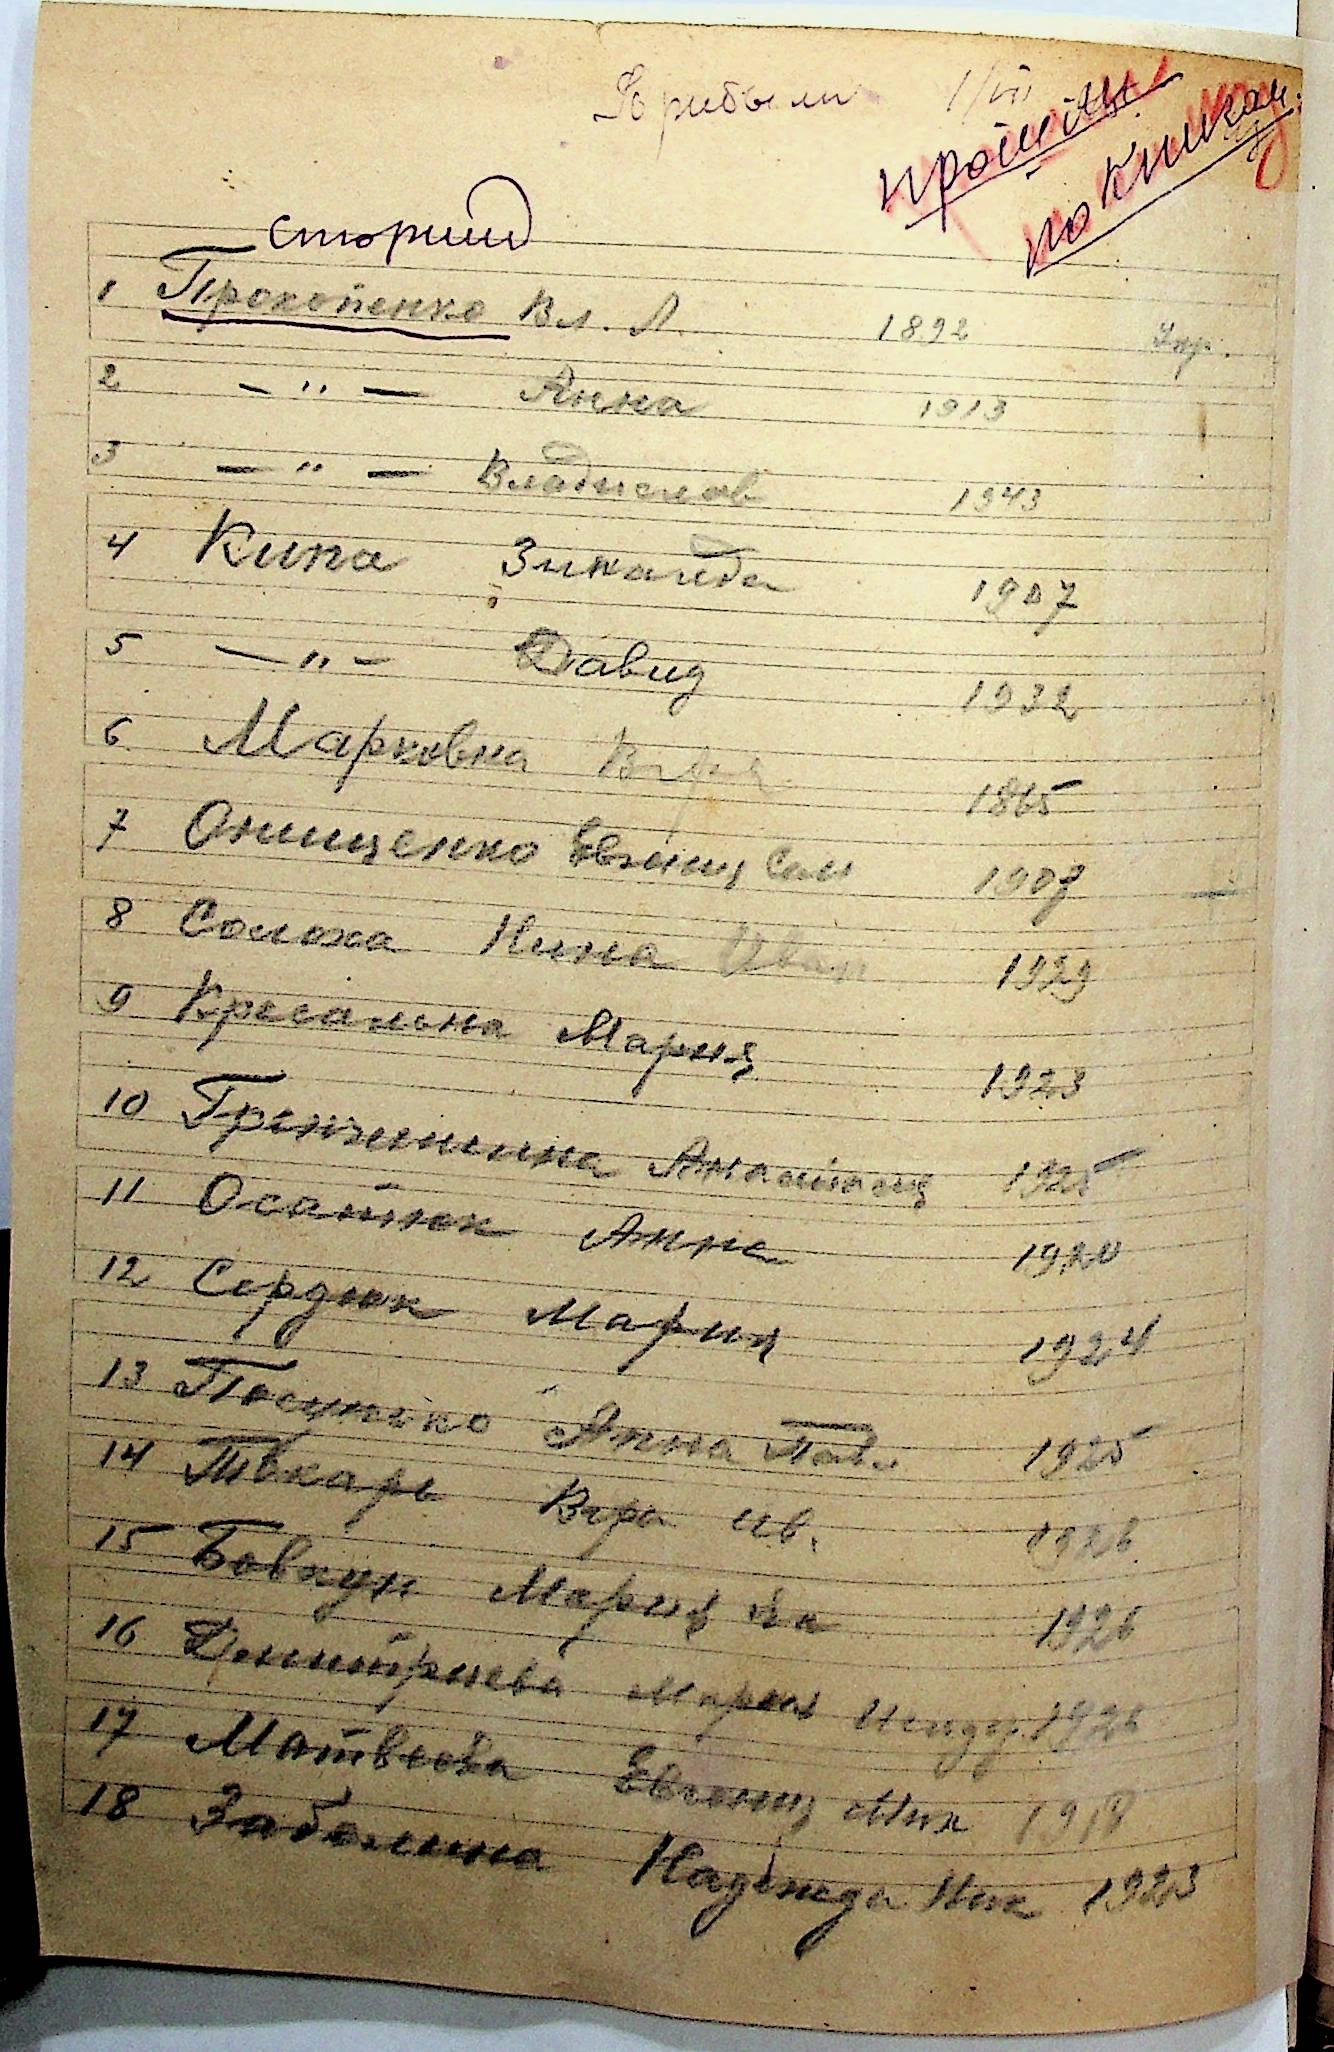 Прибыли 1/VII
пройти
по книгам
старший
1 Прокопенко Вл. Л. 1892 Укр.
2 — " — Анна 1913
3 — " — Владислав 1943
4 Кипа Зинаида 1907
5 — " — Давид 1932
6 Марковна Вера 1865
7 Онищенко Евгения Сам
8 Солоха Нина Иван 1929
9 Кресальна Мария 1923
10 Анастасия 1925
11 Осатюк Анна 1920
12 Сердюк Мария 1924
13 Анна Павл 1925
14 Ткарь Вера Ив. 1926
15 Бовкун Мария 1926
16 Дмитриева Мария 1926
17 Евгения Мих 1918
18 Заболина Надежда Ник 1923